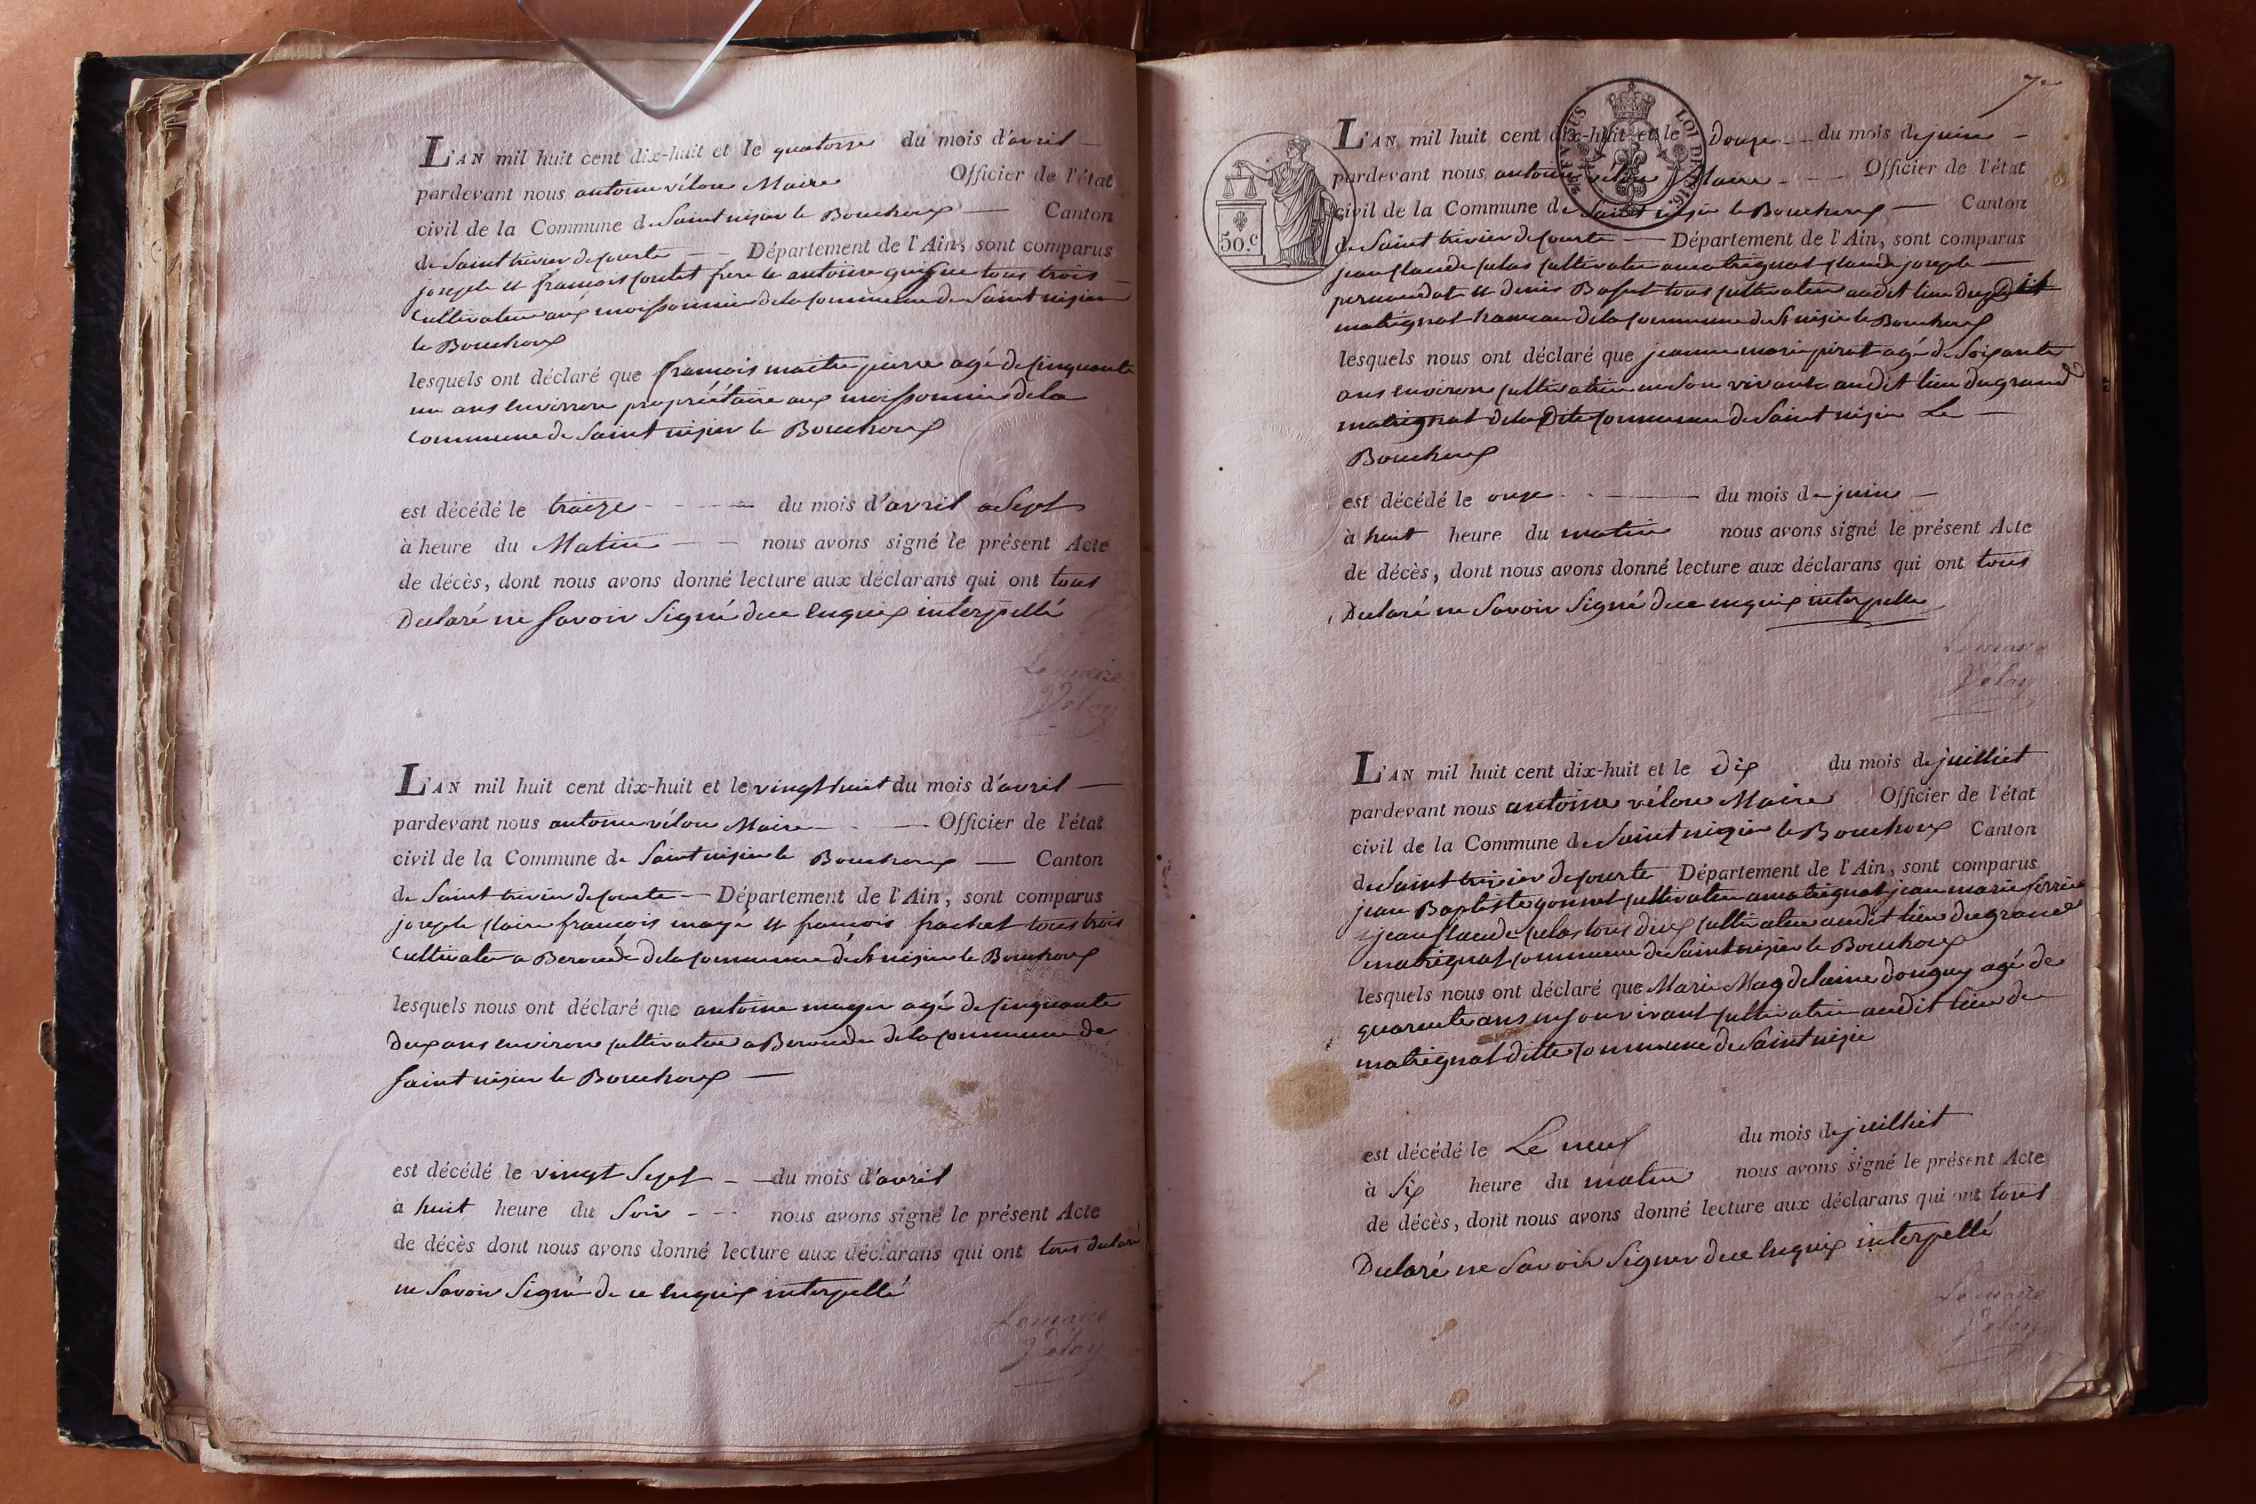 L'AN mil huit cent dix-huit et le quatorze du mois d'avril
pardevant nous antoine vélon Maire Officier de l'état
civil de la Commune de Saint nizier le Bouchoux Canton
de Saint trivier de courte Département de l'Ain, sont comparus
joseph et françois frère et antoine tous trois
Cultivateur aux moissonnier de la commune de Saint nizier
le Bouchoux
lesquels ont déclaré que francois maitre pierre agé de cinquante
un ans environ propriétaire aux moissonnier de la
Commune de Saint nizier le Bouchoux
est décédé le traize du mois d'avril a Sept
à heure du Matin nous avons signé le présent Acte
de décès, dont nous avons donné lecture aux déclarans qui ont tous
Declaré ne Savoir Signé dece enquis interpellé
Le maire
Veloy
L'AN mil huit cent dix-huit et le vingt huit du mois d'avril
pardevant nous antoine vélon Maire Officier de l'état
civil de la Commune de Saint nizier le Bouchoux Canton
de Saint trivier de courte Département de l'Ain, sont comparus
joseph claire françois et francois tous trois
Cultivateur a de la commune de St nizier le Bouchoux
lesquels nous ont déclaré que antoine agé de cinquante
Deux ans environ cultivateur a de la commune de
Saint nizier le Bouchoux
est décédé le vingt Sept du mois d'avril
à huit heure du Soir nous avons signé le présent Acte
de décès dont nous avons donné lecture aux déclarans qui ont tous declaré
ne Savoir Signé de ce enquis interpellé
Le maire
Veloy
7e
LOI DE 1816
50.c
L'AN mil huit cent dix-huit et le Douze du mois de juin
pardevant nous antoine vélon Maire Officier de l'état
civil de la Commune de Saint nizier le Bouchoux Canton
de Saint trivier de courte Département de l'Ain, sont comparus
jean claude cultivateur a matrignat claude joseph
et denis tous cultivateur audit lieu
matrignat hameau de la commune de St nizier le Bouchoux
lesquels nous ont déclaré que jeanne marie agé de Soixante
ans environ cultivatrice en son vivant audit lieu du grand
matrignat de la Dite commune de Saint nizier Le
Bouchoux
est décédé le onze du mois de juin
à huit heure du matin nous avons signé le présent Acte
de décès, dont nous avons donné lecture aux déclarans qui ont tous
Declaré ne Savoir Signé dece enquis interpellé
Le maire
Veloy
L'AN mil huit cent dix-huit et le Dix du mois de juilliet
pardevant nous antoine vélon Maire Officier de l'état
civil de la Commune de Saint nizier le Bouchoux Canton
de Saint trivier de courte Département de l'Ain, sont comparus
jean Baptiste gonnet cultivateur a matrignat jean marie
jean claude tous deux cultivateur audit lieu du grand
matrignat commune de Saint nizier le Bouchoux
lesquels nous ont déclaré que Marie Magdelaine donguy agé de
quarente ans en son vivant cultivatrice audit lieu de
matrignat ditte commune de Saint nizie
est décédé le Le neuf du mois de juilliet
à Six heure du matin nous avons signé le présent Acte
de décès, dont nous avons donné lecture aux déclarans qui ont tous
Declaré ne Savoir Signer dece enquis interpellé
Le maire
Veloy